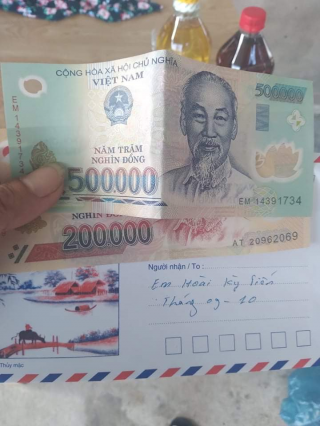 CỘNG HÒA XÃ HỘI CHỦ NGHĨA
VIỆT NAM
500.000
EM 14391734
NĂM TRĂM
NGHÌN ĐỒNG
500.000
EM 14391734
NGHÌN
200.000
AT 20962069
Người nhận / To :
Em Hoài Kỳ Tiến
Tháng 09 - 10
Thủy mặc